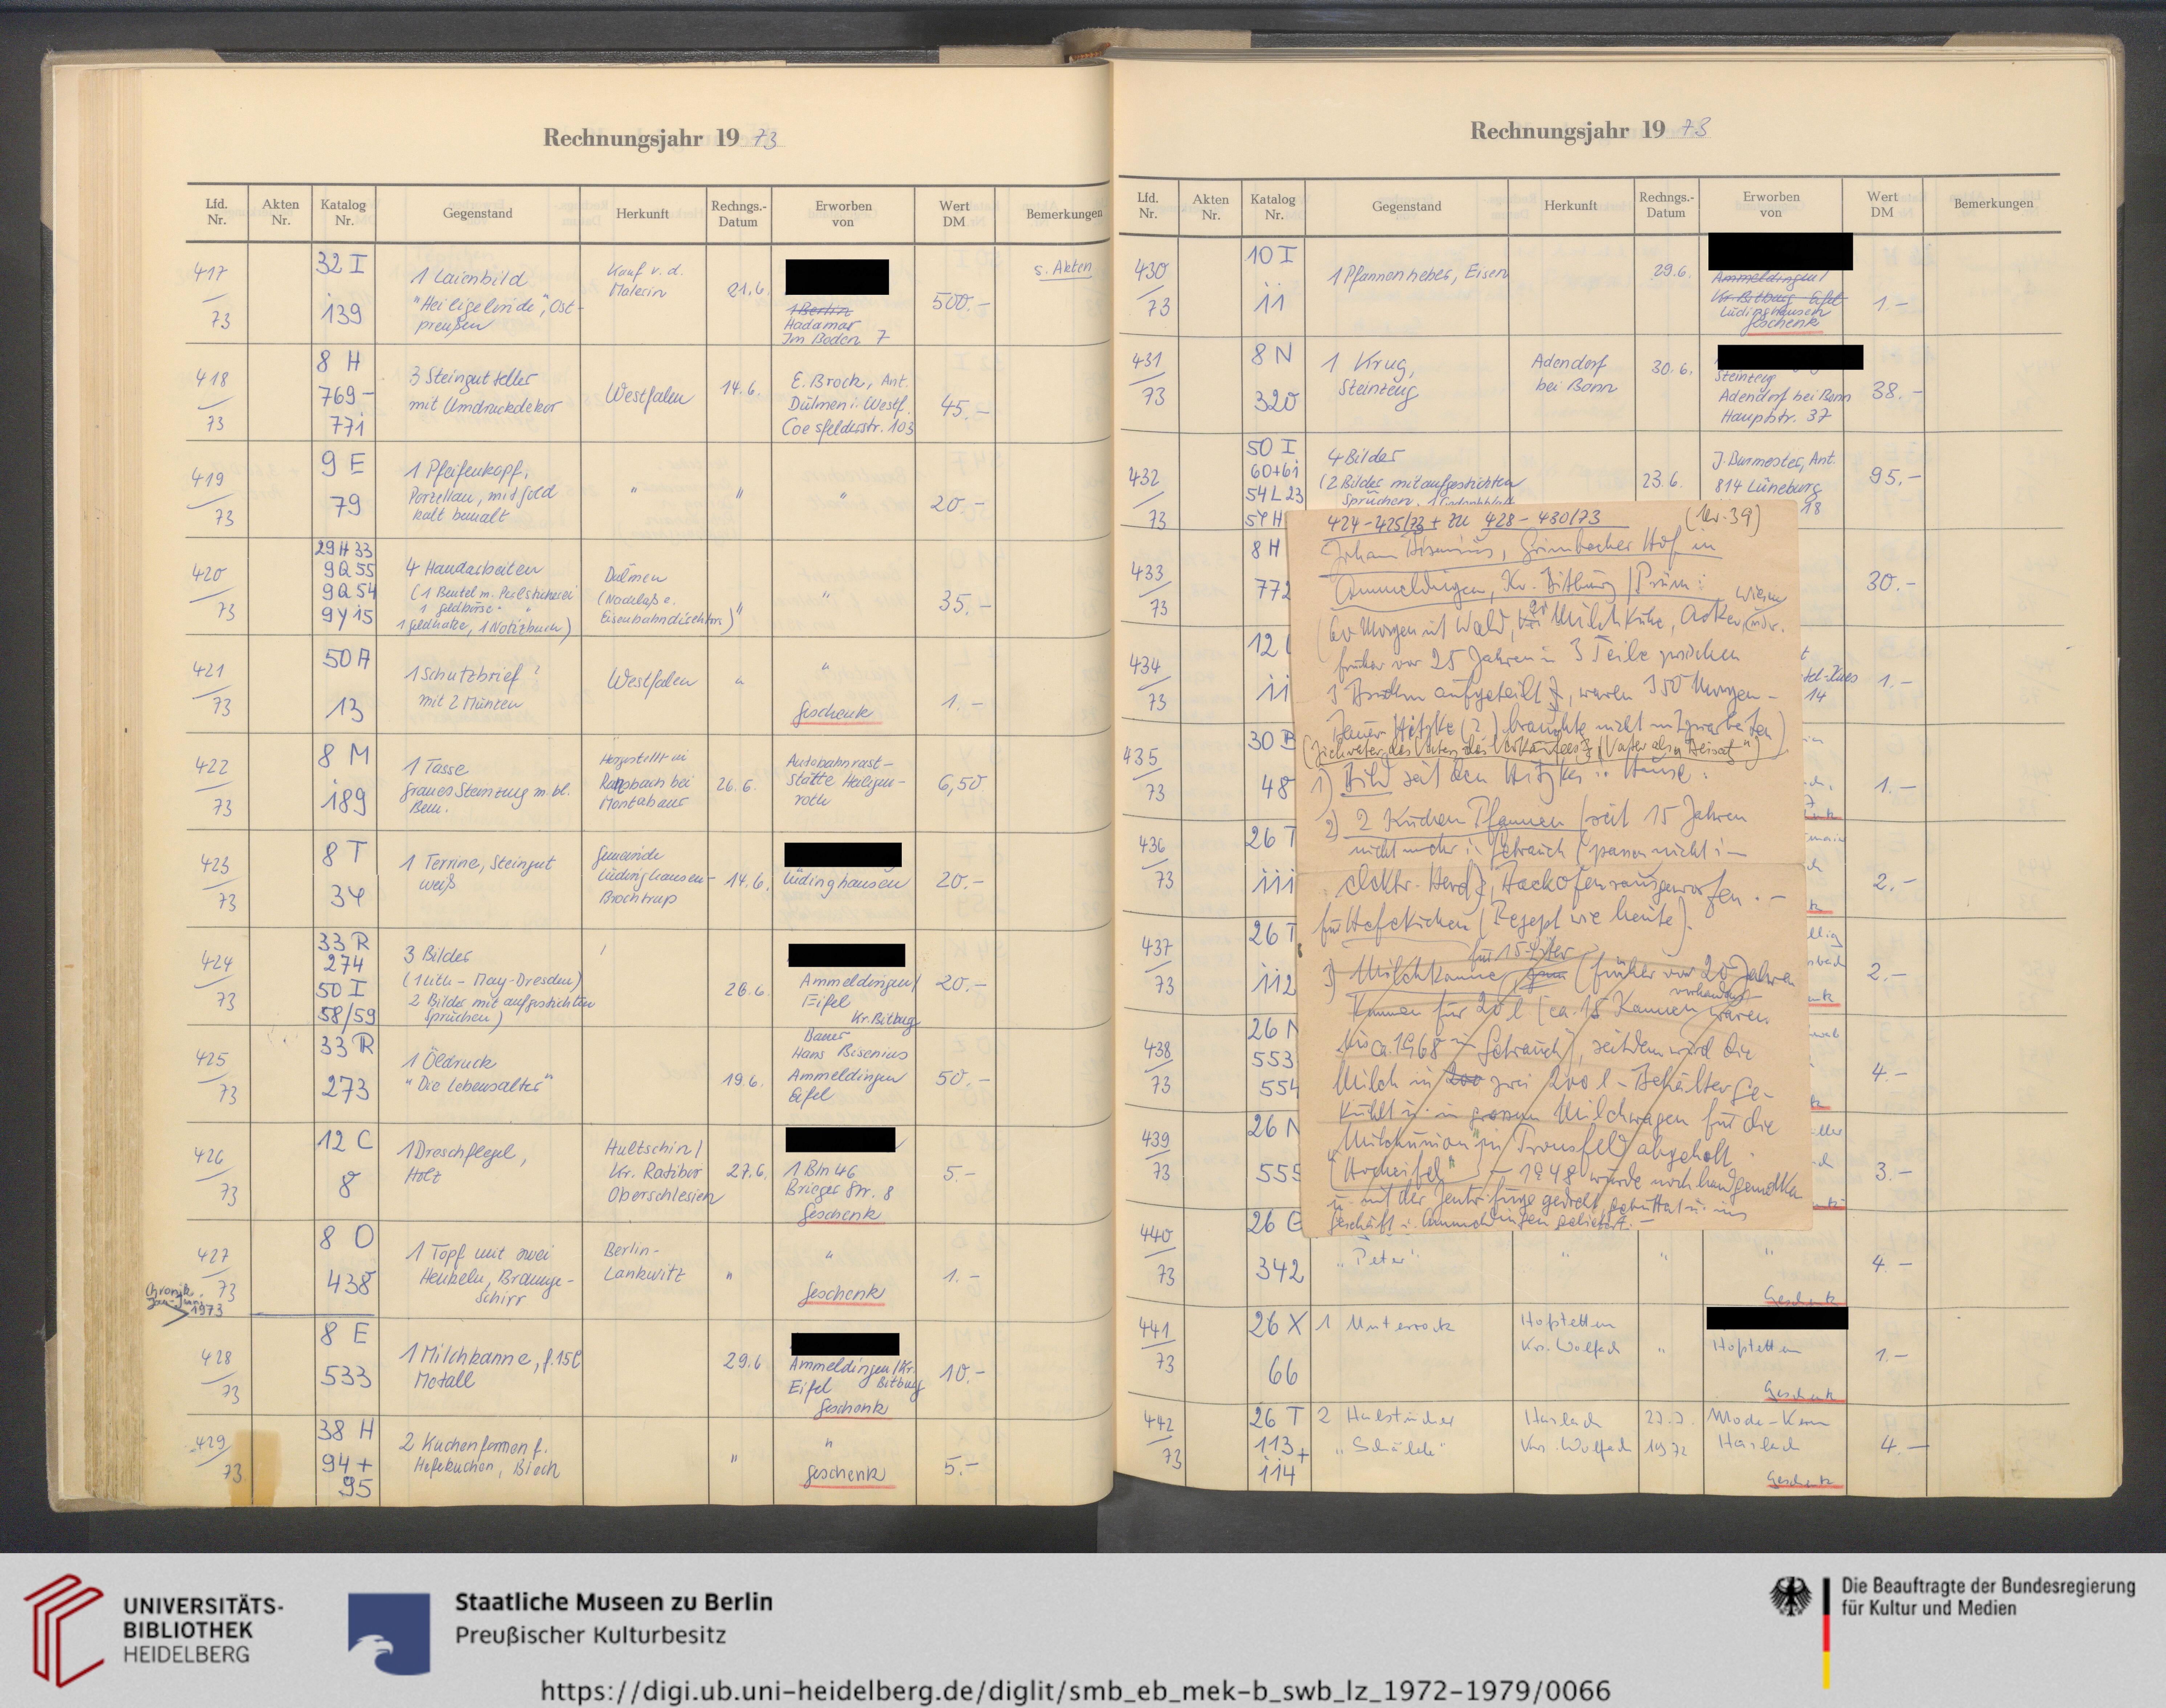 Rechnungsjahr 19 73
Lfd. Nr.
Akten Nr.
Katalog Nr.
Gegenstand
Herkunft
Rechngs.-Datum
Erworben von
Wert DM
Bemerkungen
417/73
32 I
139
1 Laienbild
"Heiligelinde", Ost-
preußen
Kauf v. d.
Malerin
21.6.
1 Berlin
Hadamar
Im Boden 7
500.-
s. Akten
418/73
8 H
769-
771
3 Steingutteller
mit Umdruckdekor
Westfalen
14.6.
E. Brock, Ant.
Dülmen i. Westf.
Coesfelderstr. 103
45.-
419/73
9 E
79
1 Pfeifenkopf,
Porzellan, mit Gold
kalt bemalt
"
"
"
20.-
420/73
29 H 33
9 Q 55
9 Q 54
9 Y 15
4 Handarbeiten
(1 Beutel m. Perlstickerei
1 Geldbörse "
1 Geldkatze, 1 Notizbuch)
Dülmen
(Nachlaß e.
Eisenbahndirektors)
"
"
35.-
421/73
50 A
13
1 Schutzbrief ?
mit 2 Münzen
Westfalen
"
"
Geschenk
1.-
422/73
8 M
189
1 Tasse
graues Steinzeug m. bl.
Bem.
Hergestellt in
Ransbach bei
Montabaur
26.6.
Autobahnrast-
stätte Heiligen-
roth
6,50
423/73
8 T
34
1 Terrine, Steingut
weiß
Gemeinde
Lüdinghausen-
Brochtrup
14.6.
Lüdinghausen
20.-
424/73
33 R
274
50 I
58/59
3 Bilder
(1 Lith - May-Dresden)
2 Bilder mit aufgestickten
Sprüchen)
26.6.
Ammeldingen/
Eifel
Kr. Bitburg
20.-
425/73
33 R
273
1 Öldruck
"Die Lebensalter"
19.6.
Bauer
Hans Bisenius
Ammeldingen
Eifel
50.-
426/73
12 C
8
1 Dreschflegel,
Holz
Hultschin/
Kr. Ratibor
Oberschlesien
27.6.
1 Bln 46
Brieger Str. 8
Geschenk
5.-
427/73
8 O
438
1 Topf mit zwei
Henkeln, Braunge-
schirr
Berlin-
Lankwitz
"
"
Geschenk
1.-
Chronik
Jan-Juni
1973
428/73
8 E
533
1 Milchkanne, f. 15 l
Metall
29.6
Ammeldingen/Kr.
Eifel Bitburg
Geschenk
10.-
429/73
38 H
94+
95
2 Kuchenformen f.
Hefekuchen, Blech
"
"
Geschenk
5.-
Rechnungsjahr 19 73
Lfd. Nr.
Akten Nr.
Katalog Nr.
Gegenstand
Herkunft
Rechngs.-Datum
Erworben von
Wert DM
Bemerkungen
430/73
10 I
11
1 Pfannenheber, Eisen
29.6.
Ammeldingen/
Kr. Bitburg Eifel
Lüdinghausen
Geschenk
1.-
431/73
8 N
320
1 Krug,
Steinzeug
Adendorf
bei Bonn
30.6.
Steinzeug
Adendorf bei Bonn
Hauptstr. 37
38.-
432/73
50 I
60+61
54 L 23
54 H
4 Bilder
(2 Bilder mit aufgestickten
Sprüchen,
23.6.
J. Burmester, Ant.
814 Lüneburg
18
95.-
433/73
8 H
772
30.-
434/73
12
11
14
1.-
435/73
30 B
48
1.-
436/73
26 T
111
2.-
437/73
26 T
112
2.-
438/73
26 N
553
554
4.-
439/73
26 N
555
3.-
440/73
26 G
342
"Peter"
"
"
"
Geschenk
4.-
441/73
26 X
66
1 Unterrock
Hofstetten
Kr. Wolfach
"
Hofstetten
Geschenk
1.-
442/73
26 T
113+
114
2 Halstücher
"Schälche"
Haslach
Kr. Wolfach
27.7.
1972
Mode-Kern
Haslach
Geschenk
4.-
424-425/73 + zu 428-430/73 (Kr. 39)
Johann Bisenius, Hof in
Ammeldingen, Kr. Bitburg/Prüm:
(60 Morgen mit Wald, Milchkühe, Acker,
früher vor 25 Jahren in 3 Teile zwischen
3 aufgeteilt, waren 350 Morgen -
brauchte nicht mitzuarbeiten)
1) Bild seit den
2) 2 Kuchen Pfannen (seit 15 Jahren
nicht mehr in Gebrauch (passen nicht in
elektr. Herd), Backofen rausgeworfen. -
für Hefekuchen (Rezept wie heute).
für 15 Liter
3) Milchkanne (früher vor 20 Jahren
vorhanden
Kannen für 20 l (ca. 15 Kannen waren
bis ca. 1968 in Gebrauch), seitdem wird die
Milch in zwei 200 l-Behälter ge-
kühlt u. in grossen Milchwagen für die
Milchunion in Pronsfeld abgeholt.
"Hocheifel" - 1948 wurde noch handgemolken
u. mit der Zentrifuge gedreht, gebuttert u. ins
Geschäft i. Ammeldingen geliefert. -
UNIVERSITÄTS-
BIBLIOTHEK
HEIDELBERG
Staatliche Museen zu Berlin
Preußischer Kulturbesitz
Die Beauftragte der Bundesregierung
für Kultur und Medien
https://digi.ub.uni-heidelberg.de/diglit/smb_eb_mek-b_swb_lz_1972-1979/0066